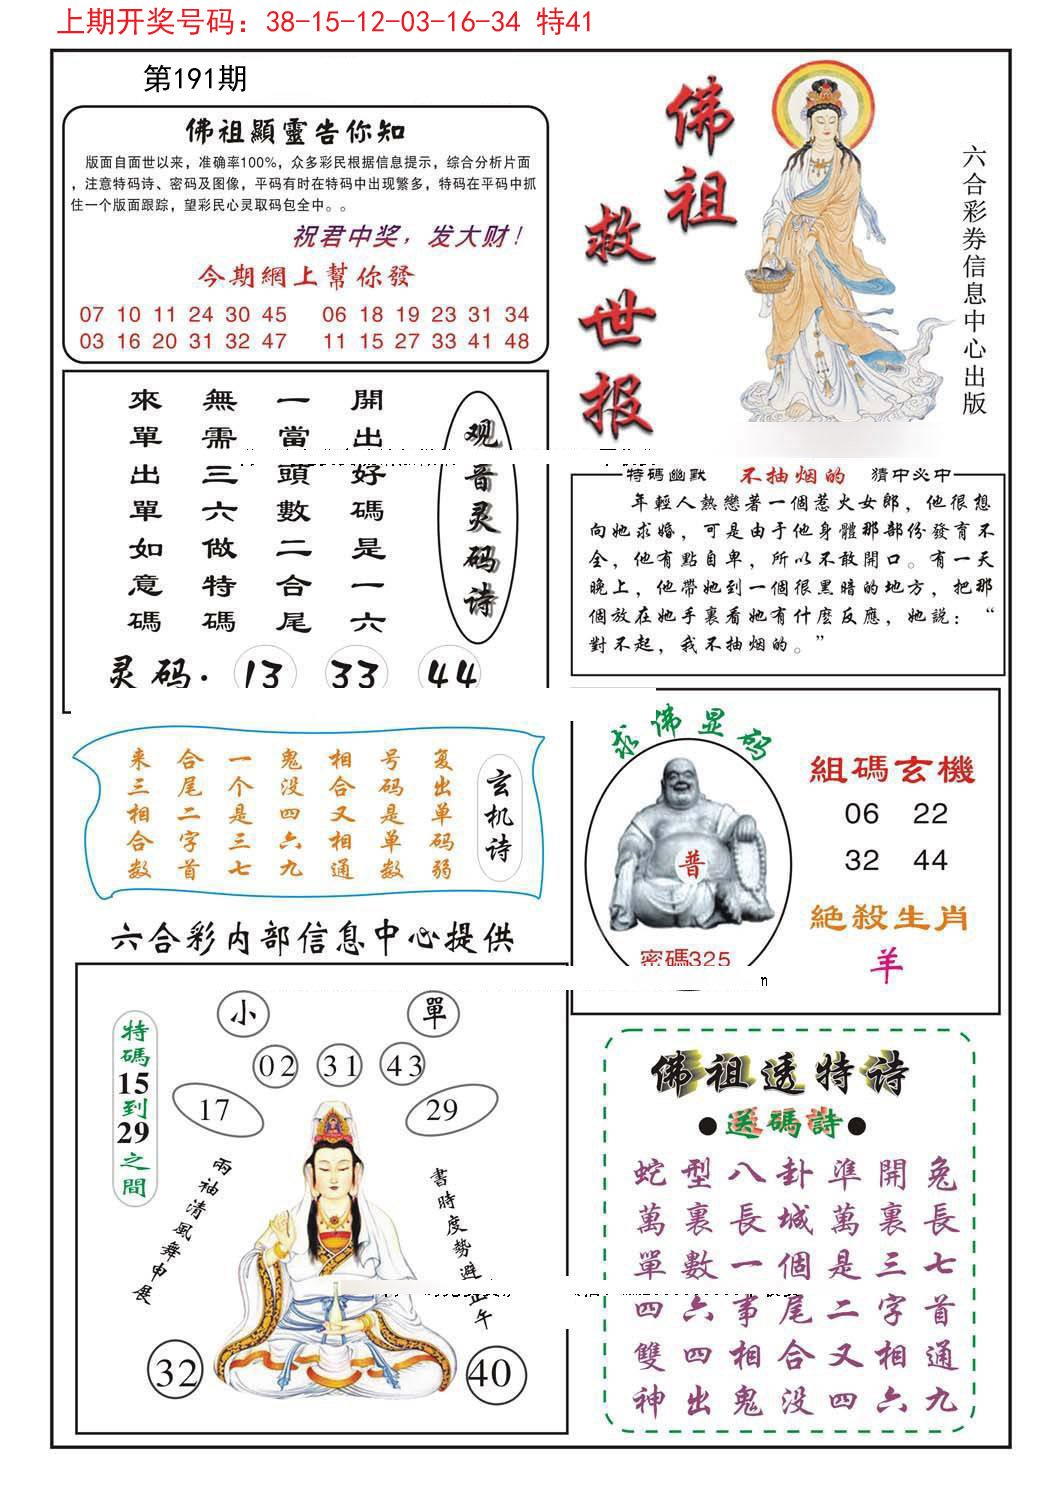 上期开奖号码：38-15-12-03-16-34 特41
第191期
佛祖顯靈告你知
版面自面世以来，准确率100%，众多彩民根据信息提示，综合分析片面
，注意特码诗、密码及图像，平码有时在特码中出现繁多，特码在平码中抓
住一个版面跟踪，望彩民心灵取码包全中。。
祝君中奖，发大财！
今期網上幫你發
07 10 11 24 30 45 06 18 19 23 31 34
03 16 20 31 32 47 11 15 27 33 41 48
佛祖
救世报
六合彩券信息中心出版
观音灵码诗
開出好碼是一六
一當頭數二合尾
無需三六做特碼
來單出單如意碼
灵码. 13 33 44
特碼幽默 不抽烟的 猜中必中
年輕人熱戀著一個惹火女郎，他很想
向她求婚，可是由于他身體那部份發育不
全，他有點自卑，所以不敢開口。有一天
晚上，他帶她到一個很黑暗的地方，把那
個放在她手裏看她有什麼反應，她説：“
對不起，我不抽烟的。”
玄机诗
复出单码弱
号码是单数
相合又相通
鬼没四六九
一个是三七
合尾二字首
来三相合数
求佛显码
普
密碼325
組碼玄機
06 22
32 44
絕殺生肖
羊
六合彩内部信息中心提供
特碼15到29之間
小 單
02 31 43
17 29
兩袖清風舞申展
書時度勢避正午
32 40
佛祖透特诗
●送碼詩●
蛇型八卦準開兔
萬裏長城萬裏長
單數一個是三七
四六事尾二字首
雙四相合又相通
神出鬼没四六九